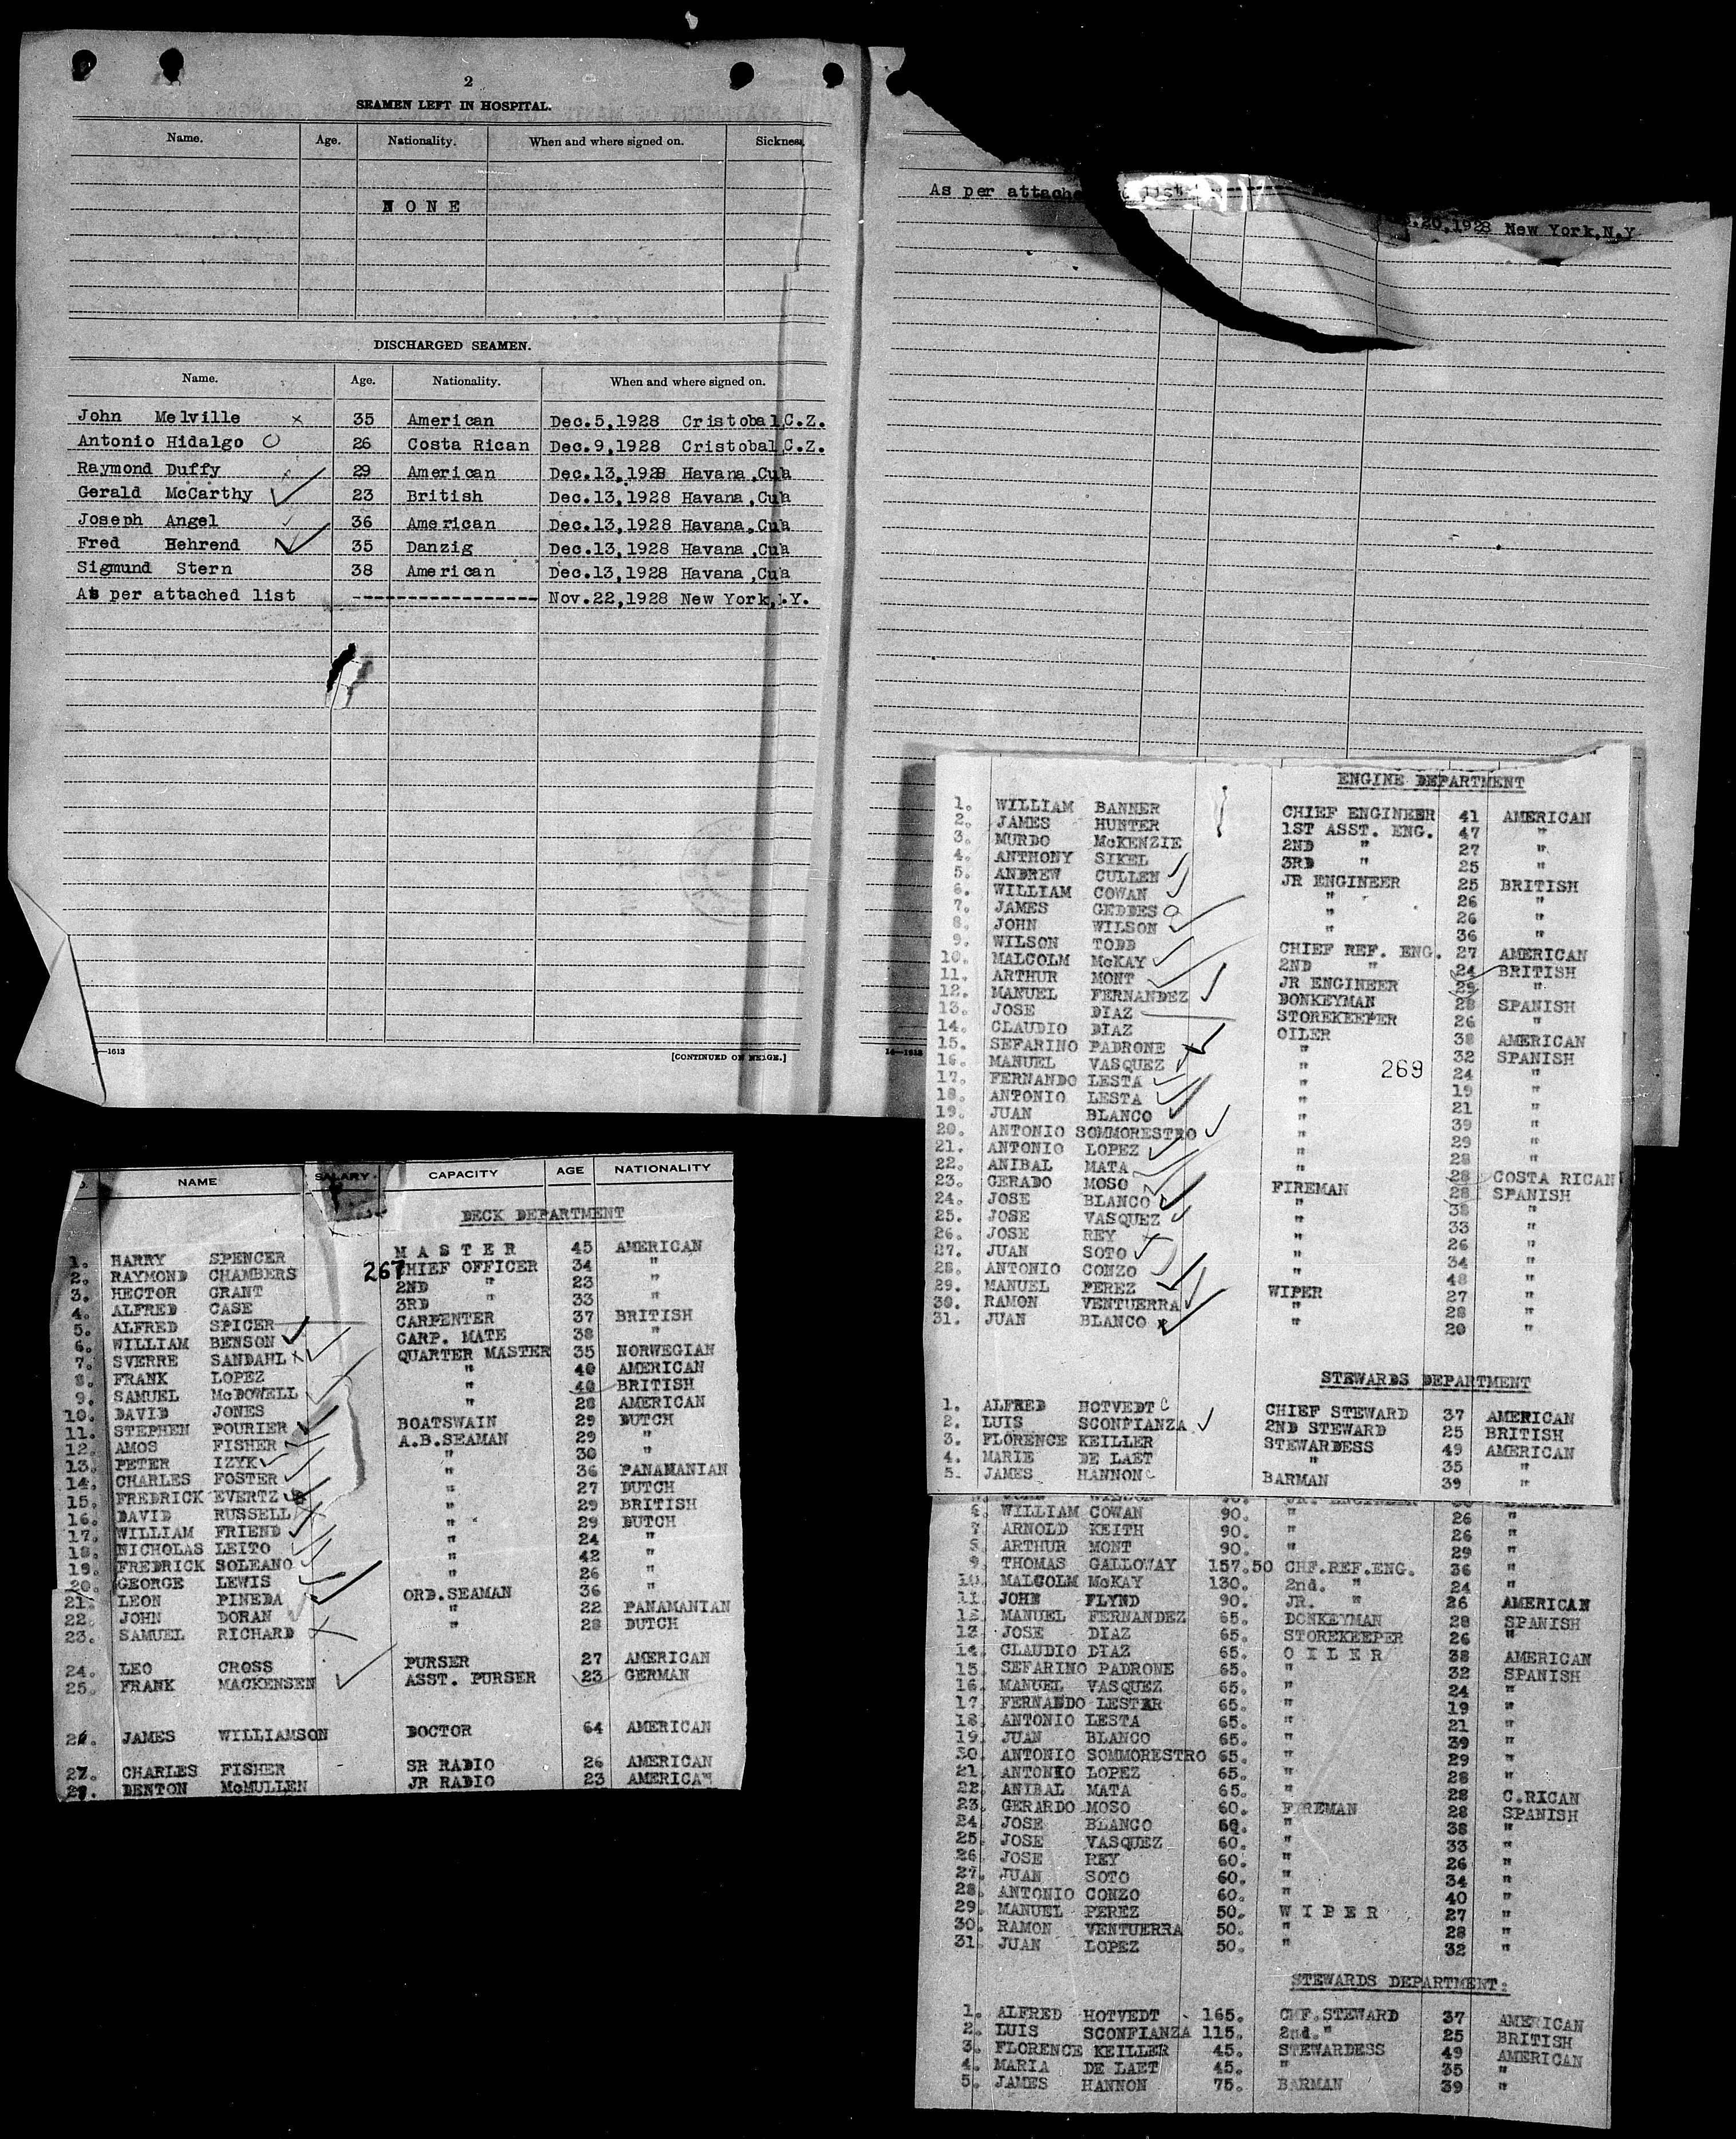 2
SEAMEN LEFT IN HOSPITAL.
Name. Age. Nationality. When and where signed on. Sickness.
NONE
DISCHARGED SEAMEN.
Name. Age. Nationality. When and where signed on.
John Melville x 35 American Dec.5,1928 Cristobal C.Z.
Antonio Hidalgo O 26 Costa Rican Dec.9,1928 Cristobal C.Z.
Raymond Duffy x 29 American Dec.13,1928 Havana,Cu a
Gerald McCarthy ✓ 23 British Dec.13,1928 Havana,Cu a
Joseph Angel ✓ 36 American Dec.13,1928 Havana,Cu a
Fred Behrend ✓ 35 Danzig Dec.13,1928 Havana,Cu a
Sigmund Stern 38 American Dec.13,1928 Havana,Cu a
As per attached list ---------------- Nov.22,1928 New York, .Y.
—1613 [CONTINUED ON NEXT PAGE.]
As per attache list
.20,1928 New York,N.Y
NAME SALARY CAPACITY AGE NATIONALITY
DECK DEPARTMENT
1. HARRY SPENCER MASTER 45 AMERICAN
267
2. RAYMOND CHAMBERS CHIEF OFFICER 34 "
3. HECTOR GRANT 2ND " 23 "
4. ALFRED CASE 3RD " 33 "
5. ALFRED SPICER CARPENTER 37 BRITISH
6. WILLIAM BENSON ✓ CARP. MATE 38 "
7. SVERRE SANDAHL x ✓ QUARTER MASTER 35 NORWEGIAN
8. FRANK LOPEZ " 40 AMERICAN
9. SAMUEL McDOWELL ✓ " 40 BRITISH
10. DAVID JONES " 28 AMERICAN
11. STEPHEN POURIER ✓ BOATSWAIN 29 DUTCH
12. AMOS FISHER ✓ A.B.SEAMAN 29 "
13. PETER IZYK ✓ " 30 "
14. CHARLES FOSTER ✓ " 36 PANAMANIAN
15. FREDRICK EVERTZ ✓ " 27 DUTCH
16. DAVID RUSSELL x " 29 BRITISH
17. WILLIAM FRIEND ✓ " 29 DUTCH
18. NICHOLAS LEITO ✓ " 24 "
19. FREDRICK SOLEANO ✓ " 42 "
20. GEORGE LEWIS ✓ " 26 "
21. LEON PINEDA ✓ ORD.SEAMAN 36 "
22. JOHN DORAN ✓ " 22 PANAMANIAN
23. SAMUEL RICHARD x " 28 DUTCH
24. LEO CROSS PURSER 27 AMERICAN
25. FRANK MACKENSEN ✓ ASST. PURSER 23 GERMAN
26. JAMES WILLIAMSON DOCTOR 64 AMERICAN
27. CHARLES FISHER SR RADIO 26 AMERICAN
28. DENTON McMULLEN JR RADIO 23 AMERICAN
ENGINE DEPARTMENT
1. WILLIAM BANNER CHIEF ENGINEER 41 AMERICAN
2. JAMES HUNTER 1ST ASST. ENG. 47 "
3. MURDO McKENZIE 2ND " 27 "
4. ANTHONY SIKEL ✓ 3RD " 25 "
5. ANDREW CULLEN ✓ JR ENGINEER 25 BRITISH
6. WILLIAM COWAN ✓ " 26 "
7. JAMES GEDDES O " 26 "
8. JOHN WILSON ✓ " 36 "
9. WILSON TODD CHIEF REF. ENG. 27 AMERICAN
10. MALCOLM McKAY ✓ 2ND " 24 BRITISH
11. ARTHUR MONT ✓ JR ENGINEER 29 "
12. MANUEL FERNANDEZ ✓ DONKEYMAN 28 SPANISH
13. JOSE DIAZ STOREKEEPER 26 "
14. CLAUDIO DIAZ OILER 38 AMERICAN
15. SEFARINO PADRONE ✓ " 32 SPANISH
16. MANUEL VASQUEZ ✓ " 24 "
269
17. FERNANDO LESTA ✓ " 19 "
18. ANTONIO LESTA ✓ " 21 "
19. JUAN BLANCO ✓ " 39 "
20. ANTONIO SOMMORESTRO ✓ " 29 "
21. ANTONIO LOPEZ ✓ " 28 "
22. ANIBAL MATA ✓ " 28 COSTA RICAN
23. GERADO MOSO ✓ FIREMAN 28 SPANISH
24. JOSE BLANCO ✓ " 38 "
25. JOSE VASQUEZ ✓ " 33 "
26. JOSE REY x " 26 "
27. JUAN SOTO ✓ " 34 "
28. ANTONIO CONZO ✓ " 48 "
29. MANUEL PEREZ ✓ WIPER 27 "
30. RAMON VENTUERRA ✓ " 28 "
31. JUAN BLANCO x ✓ " 20 "
STEWARDS DEPARTMENT
1. ALFRED HOTVEDT CHIEF STEWARD 37 AMERICAN
2. LUIS SCONFIANZA ✓ 2ND STEWARD 25 BRITISH
3. FLORENCE KEILLER STEWARDESS 49 AMERICAN
4. MARIE DE LAET " 35 "
5. JAMES HANNON BARMAN 39 "
6. WILLIAM COWAN 90. " 26 "
7. ARNOLD KEITH 90. " 26 "
8. ARTHUR MONT 90. " 29 "
9. THOMAS GALLOWAY 157.50 CHF.REF.ENG. 36 "
10. MALCOLM McKAY 130. 2nd. " 24 "
11. JOHN FLYND 90. JR. " 26 AMERICAN
12. MANUEL FERNANDEZ 65. DONKEYMAN 28 SPANISH
13. JOSE DIAZ 65. STOREKEEPER 26 "
14. CLAUDIO DIAZ 65. OILER 38 AMERICAN
15. SEFARINO PADRONE 65. " 32 SPANISH
16. MANUEL VASQUEZ 65. " 24 "
17. FERNANDO LESTER 65. " 19 "
18. ANTONIO LESTA 65. " 21 "
19. JUAN BLANCO 65. " 39 "
20. ANTONIO SOMMORESTRO 65. " 29 "
21. ANTONIO LOPEZ 65. " 28 "
22. ANIBAL MATA 65. " 28 C.RICAN
23. GERARDO MOSO 60. FIREMAN 28 SPANISH
24. JOSE BLANCO 60. " 38 "
25. JOSE VASQUEZ 60. " 33 "
26. JOSE REY 60. " 26 "
27. JUAN SOTO 60. " 34 "
28. ANTONIO CONZO 60. " 40 "
29. MANUEL PEREZ 50. WIPER 27 "
30. RAMON VENTUERRA 50. " 28 "
31. JUAN LOPEZ 50. " 32 "
STEWARDS DEPARTMENT:
1. ALFRED HOTVEDT 165. CHF.STEWARD 37 AMERICAN
2. LUIS SCONFIANZA 115. 2nd. " 25 BRITISH
3. FLORENCE KEILLER 45. STEWARDESS 49 AMERICAN
4. MARIA DE LAET 45. " 35 "
5. JAMES HANNON 75. BARMAN 39 "